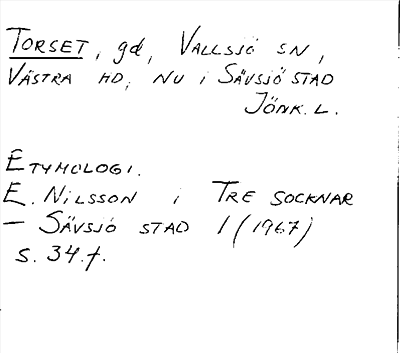 TORSET, gd, VALLSJÖ SN,
VÄSTRA HD, NU i SÄVSJÖ STAD
JÖNK. L.
ETYMOLOGI.
E. NILSSON i TRE SOCKNAR
— SÄVSJÖ STAD 1 (1967)
s. 34.f.